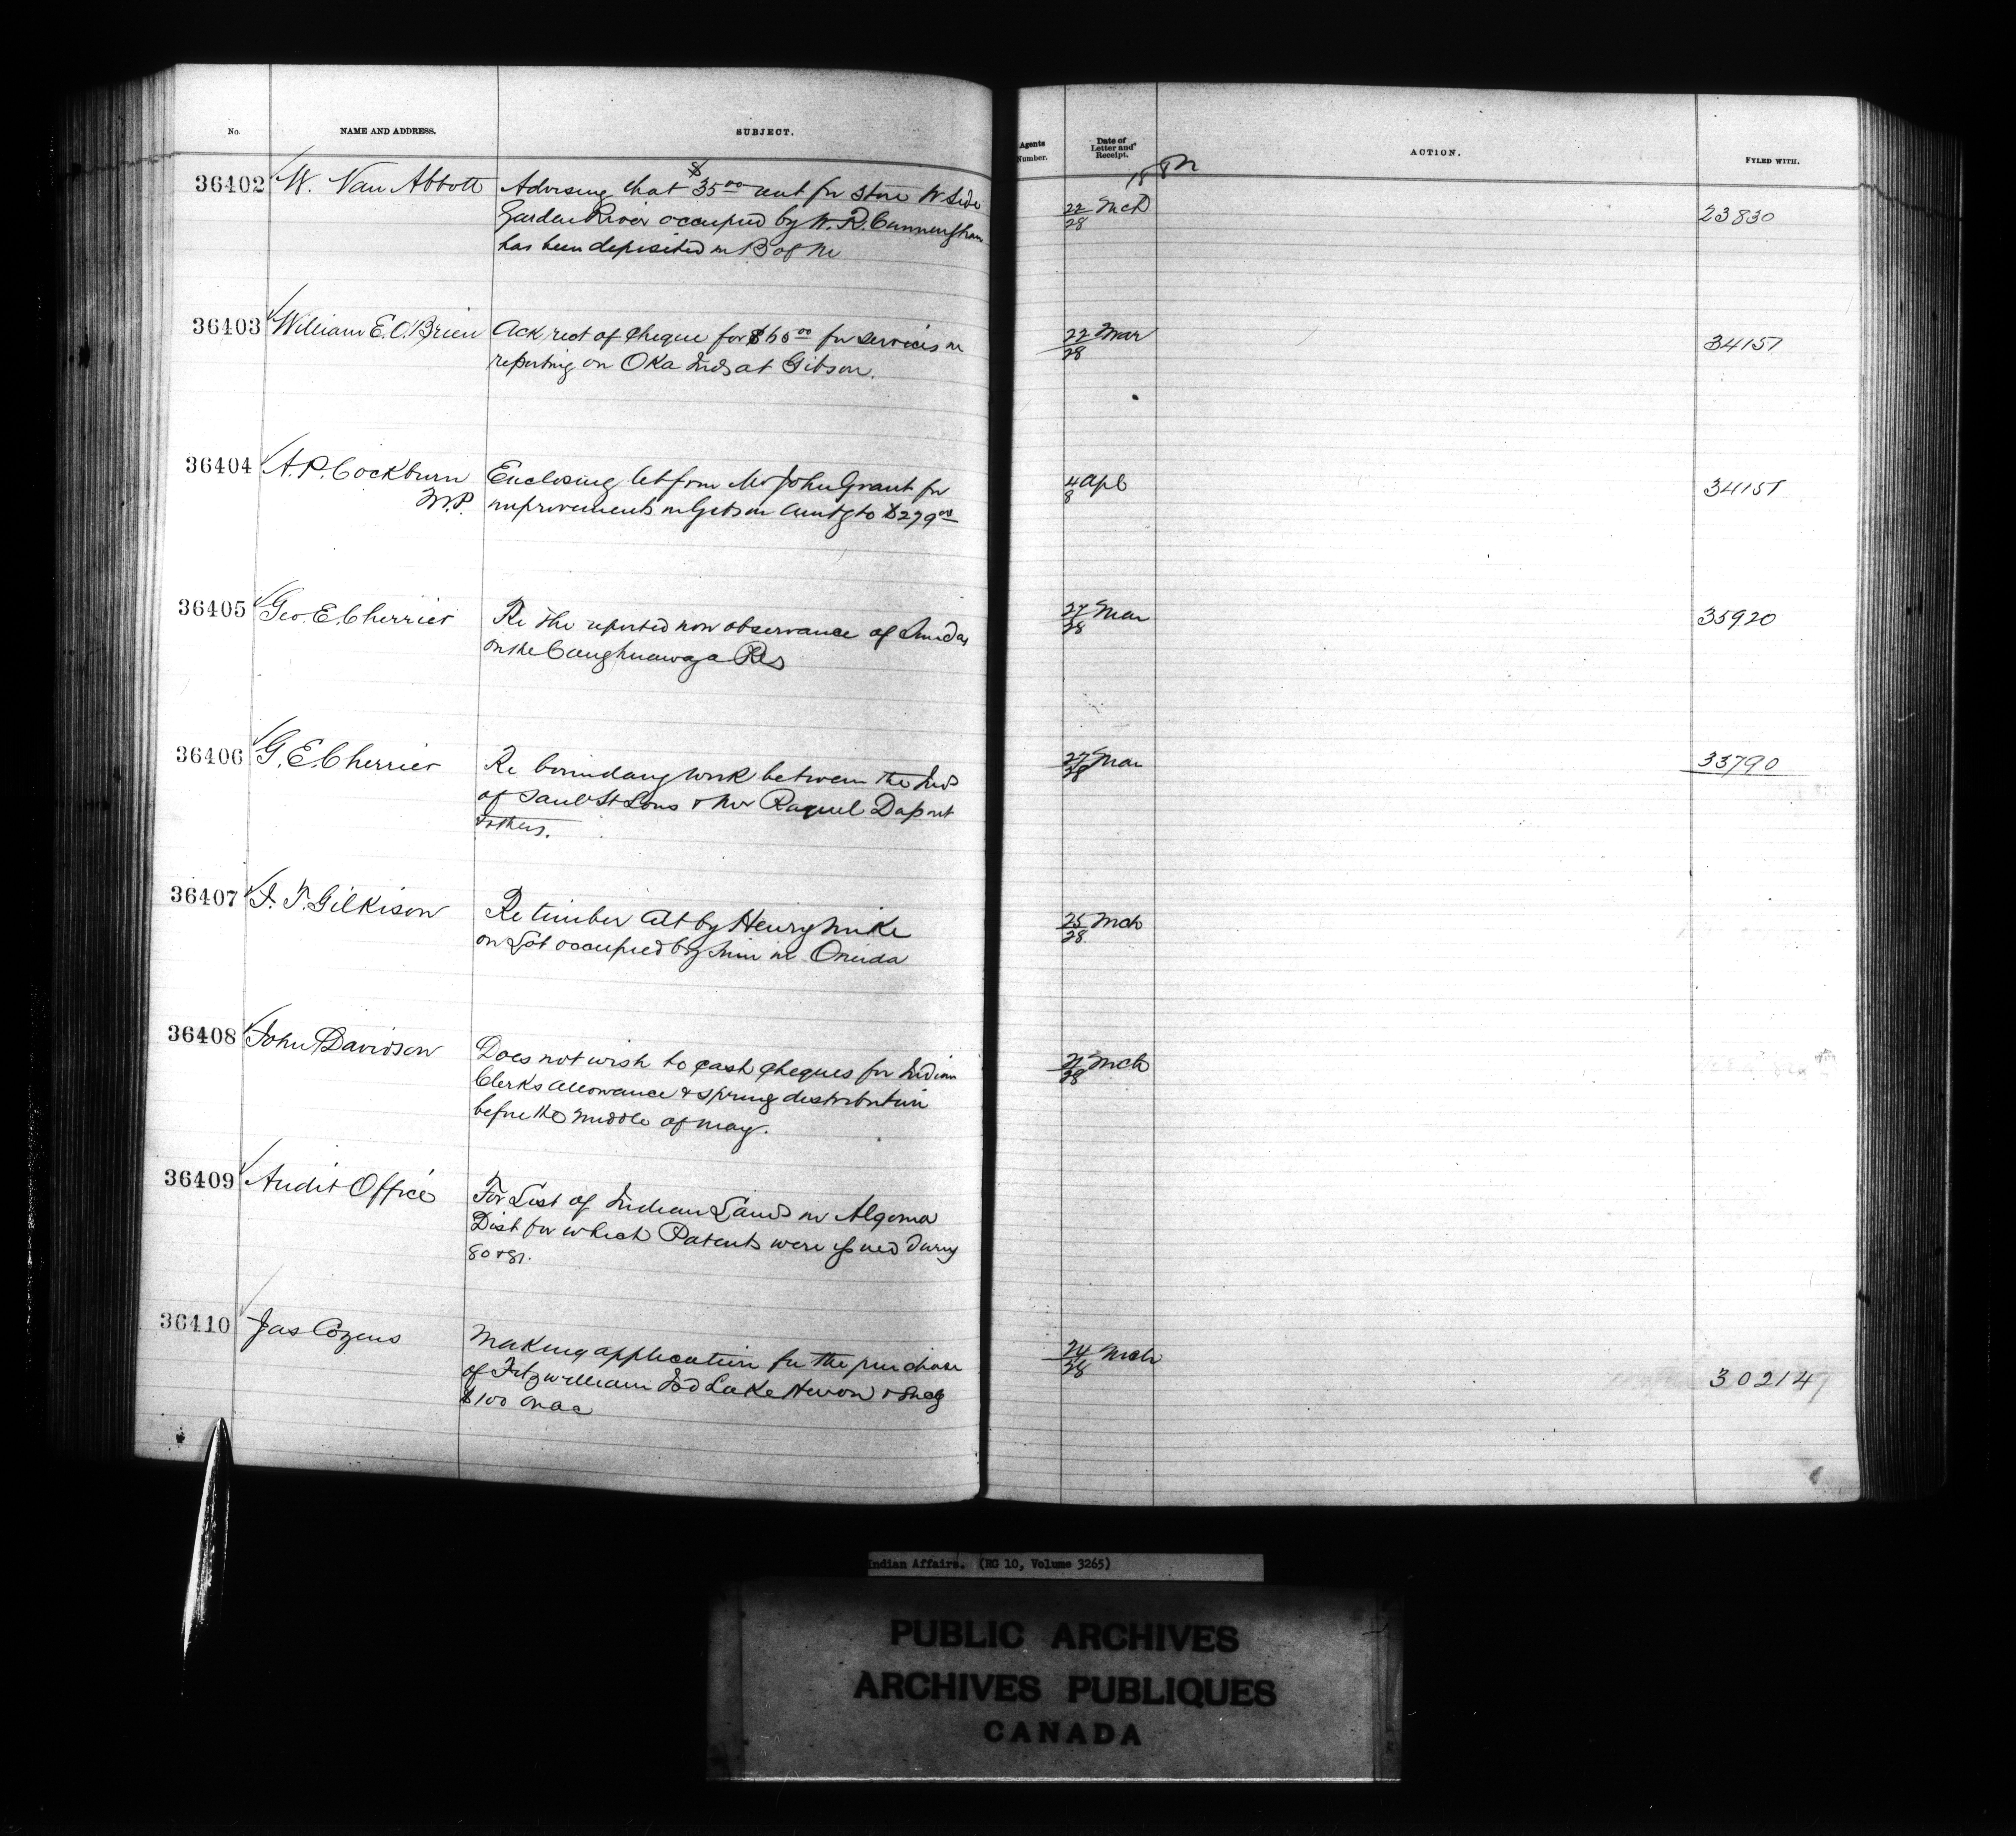 No. NAME AND ADDRESS. SUBJECT. Agents Number. Date of Letter and Receipt. ACTION. FYLED WITH.
188
36402 W. Van Abbott Advising that $35.00 rent for Store W Side 22/28 Mch 23830
Garden River occupied by W. R. Cunningham
has been deposited in B of M
36403 William E. O'Brien Ack rect of Cheque for $60.00 for services in 22/28 Mar 34151
reporting on Oka Inds at Gibson.
36404 A. P. Cockburn Enclosing let from Mr John Grant for 4/8 Apl 34151
M.P. improvements in Gibson Amtg to $279.00
36405 Geo. E. Cherrier Re the reported non observance of Sunday 27/28 Mar 35920
on the Caughnawaga Res
36406 G. E. Cherrier Re boundary work between the Inds 27/28 Mar 33790
of Sault St Louis & Mr Daport
& others.
36407 J. T. Gilkison Re timber cut by Henry Mike 25/28 Mch
on Lot occupied by him in Oneida
36408 John Davidson Does not wish to cash Cheques for Indian 28 Mch
Clerks Allowance & spring distribution
before the middle of May.
36409 Audit Office For List of Indian Lands in Algoma
Dist for which Patents were issued during
80 & 81.
36410 Jas Cozens Making application for the purchase 24/28 Mch 30214
of Fitzwilliam Isd Lake Huron & encg
$100 on ac
Indian Affairs. (RG 10, Volume 3265)
PUBLIC ARCHIVES
ARCHIVES PUBLIQUES
CANADA